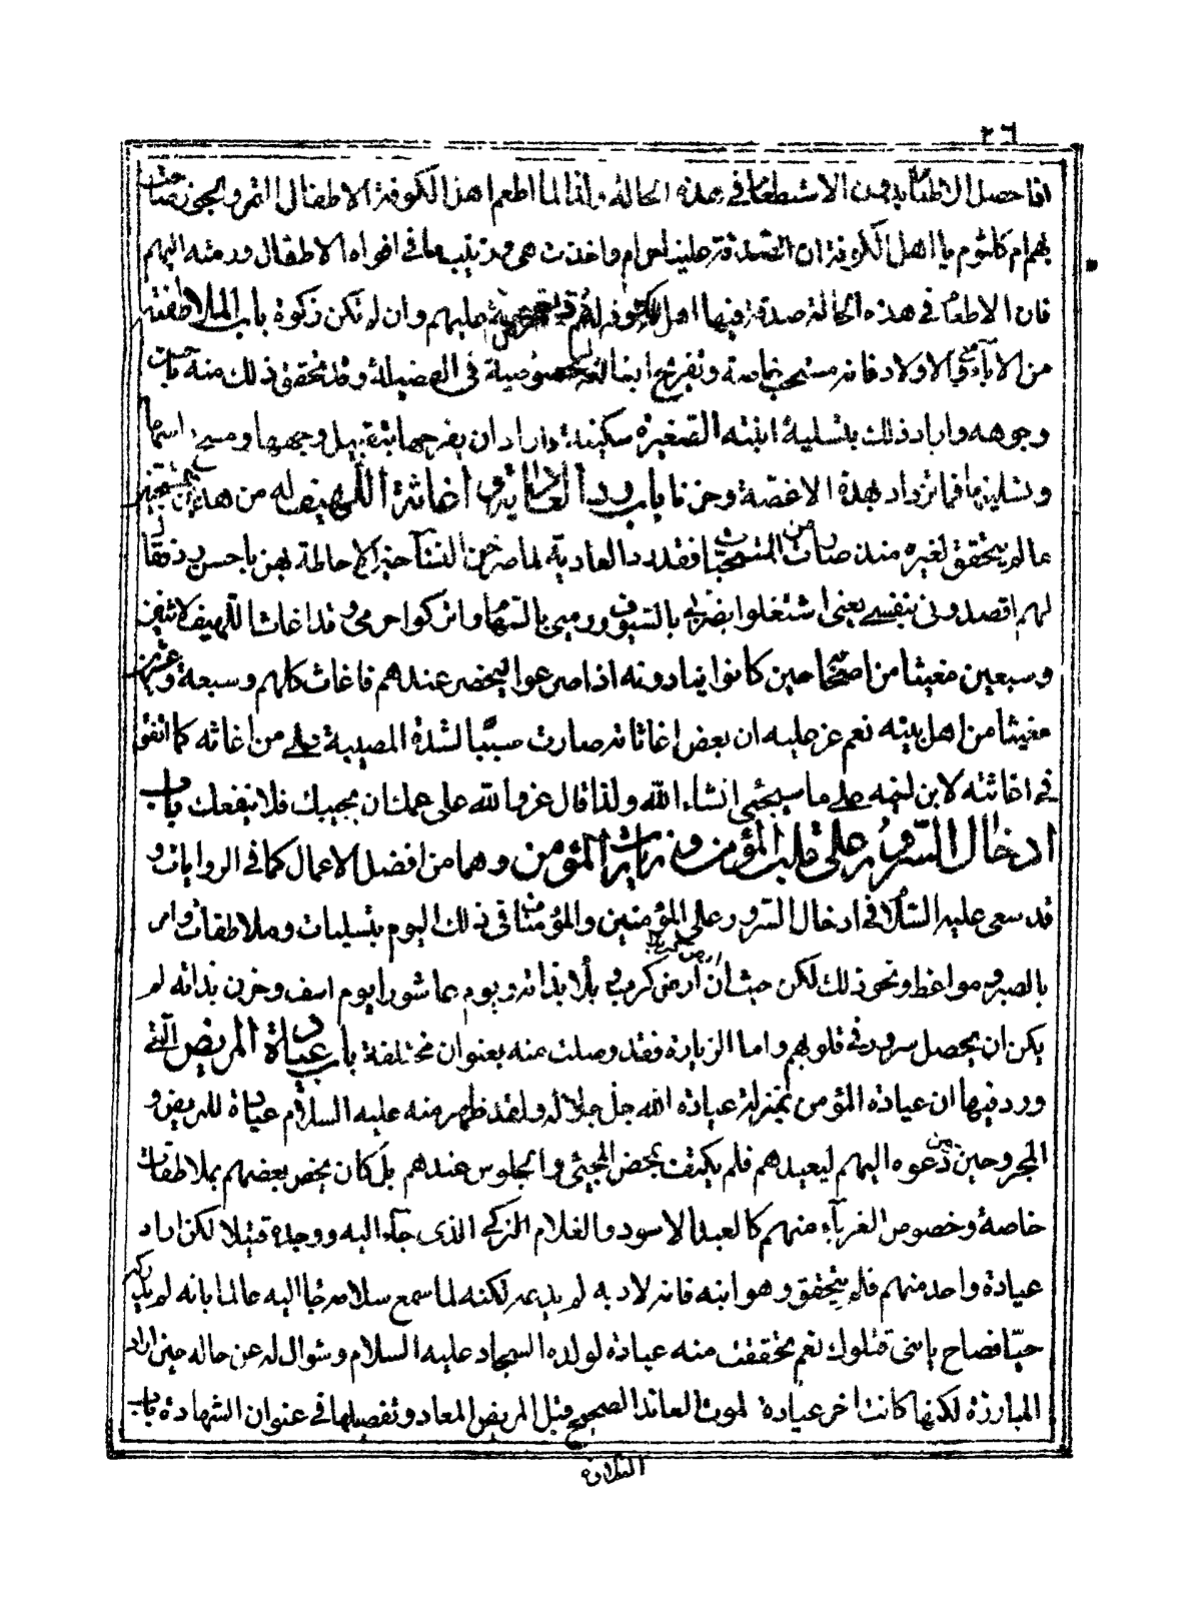 ٢٦
انما حصل الاطعام بدون الاستطعام في هذه الحالة ولذا لما اطعم اهل الكوفة الاطفال التمر والجوز صاحت
بهم ام كلثوم يا اهل الكوفة ان الصدقة علينا حرام واخذت هي وزينب ما في افواه الاطفال ورمته اليهم
فان الاطعام في هذه الحالة صدقة فيها اهل الكوفة عليهم وان لم تكن زكوة باب الملاطفة
من الآباء في الاولاد فانه مستحب خاصة وتفريح ابنائه خصوصية في الفضيلة وقد تحقق ذلك منه حسب
وجوهه واراد ذلك بتسلية ابنته الصغيرة سكينة واراد ان يفرحها بتقبيل وجهها ومسح راسها
وتسليتها فما تزداد بهذه الا غصة وحزنا باب رد العادية و اغاثة اللهيف له من هذين المستحبين
ما لم يتحقق لغيره منذ صارت من المستحبات فقد رد العادية لما صرخن النساء حين الاحاطة بهن باحسن رد فقال
لهم اقصدوني بنفسي يعني اشتغلوا بضربي بالسيوف ورميي بالسهام واتركوا حرمي وقد اغاث اللهيف لاثنين
وسبعين مغيثا من اصحابه حين كانوا ينادونه اذا صرعوا ليحضر عندهم فاغاث كلهم وسبعة وعشرين
مغيثا من اهل بيته نعم عز عليه ان بعض اغاثاته صارت سببا لشدة المصيبة على من اغاثه كما اتفق
في اغاثته لابن اخيه على ما سيجئ انشاء الله ولذا قال عز والله على عمك ان يجيبك فلا ينفعك باب
ادخال السرور على قلب المؤمن و زيارة المؤمن وهما من افضل الاعمال كما في الروايات و
قد سعى عليه السلام في ادخال السرور على المؤمنين والمؤمنات في ذلك اليوم بتسليات وملاطفات وامر
بالصبر ومواعظ ونحو ذلك لكن حيث ان ارض كرب وبلا بذاته ويوم عاشورا يوم اسف وحزن بذاته لم
يكن ان يحصل سرور في قلوبهم واما الزيارة فقد وصلت منه بعنوان مختلفة باب عيادة المريض التي
ورد فيها ان عيادة المؤمن بمنزلة عيادة الله جل جلاله ولقد ظهر منه عليه السلام عيادة للمريض و
المجروحين من دعوه اليهم ليعيدهم فلم يكتف بمحض المجيئ والجلوس عندهم بل كان يخص بعضهم بملاطفات
خاصة وخصوص الغرباء منهم كالعبد الاسود والغلام التركي الذي جاء اليه ووجده قتيلا لكن اراد
عيادة واحد منهم فلم يتحقق وهو ابنه فانه لادبه لم يدعه لكنه لما سمع سلامه جاء اليه عالما بانه لم يدركه
حيا فصاح يا بني قتلوك نعم تحققت منه عيادة لولده السجاد عليه السلام وسؤال له عن حاله حين اراد
المبارزة لكنها كانت اخر عيادة لموت العائد الصحيح قبل المريض المعاد وتفصيلها في عنوان الشهادة باب
التلاوة